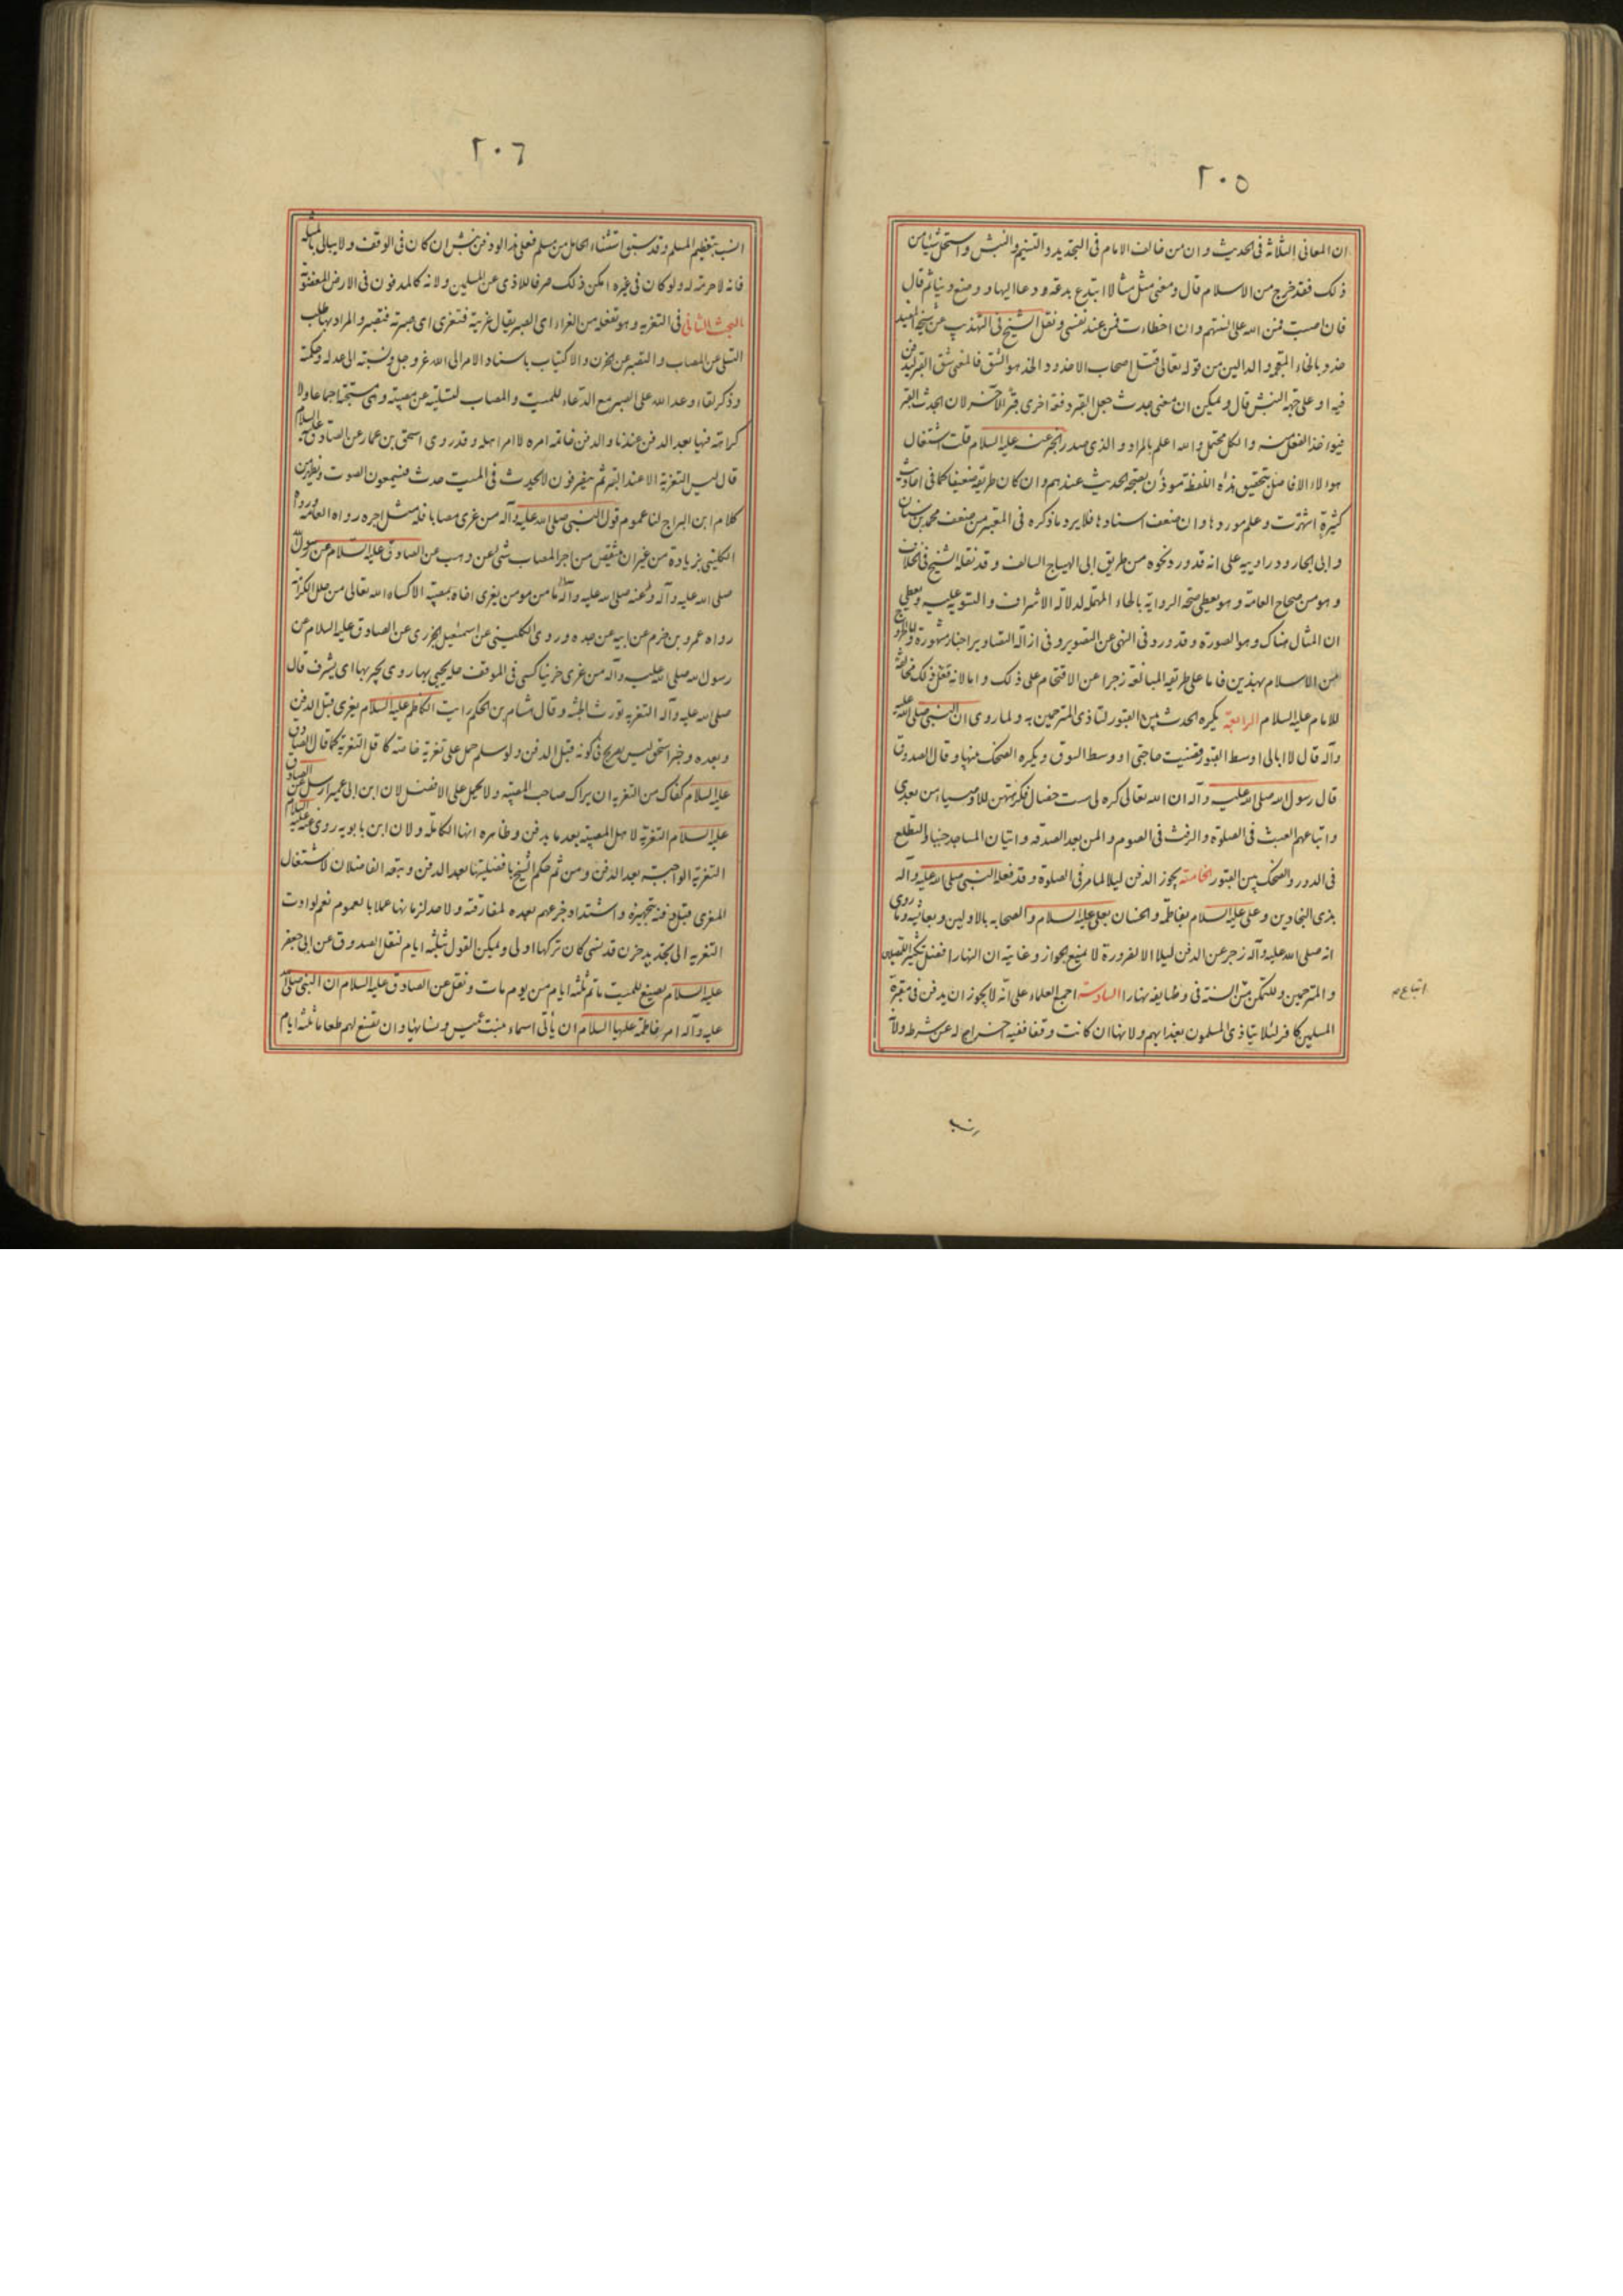 ٢٠٥
ان المعانى الثلاثة فى الحديث وان من خالف الامام فى التجديد والتسنيم والنبش واستحل شيئا من
ذلك فقد خرج من الاسلام قال ومعنى مثل مثالا ابتدع بدعة ودعا اليها و وضع دينا ثم قال
فان اصبت فمن الله على السنتهم وان اخطاءت فمن عند نفسى ونقل الشيخ فى التهذيب عن شيخه المفيد
خدد بالخاء المعجمة و الدالين من قوله تعالى قتل اصحاب الاخدود والخد هو الشق فالمعنى شق القبر ليدفن
فيه او على جهة النبش قال ويمكن ان معنى جدث جعل القبر دفعة اخرى قبرا لاخر لان الجدث القبر
فيؤاخذ الفعل منه والكل محتمل والله اعلم بالمراد والذى صدر الخبر عنه عليه السلام قلت اشتغال
هولاء الافاضل بتحقيق هذه اللفظة موذن بصحة الحديث عندهم وان كان طريقه ضعيفا كما فى احاديث
كثيرة اشتهرت وعلم موردها وان ضعف اسنادها فلا يرد ما ذكره فى المعتبر من ضعف محمد بن سنان
وابى الجارود راوييه على انه قد ورد نحوه من طريق ابى الهياج السالف وقد نقله الشيخ فى الخلاف
وهو من صحاح العامة وهو يعطى صحة الرواية بالحاء المهملة لدلالة الاشراف والتسوية عليه ويعطى
ان المثال هناك وهو الصورة وقد ورد فى النهى عن التصوير وفى ازالة التصاوير اخبار مشهورة واما الخروج
من الاسلام بهذين فاما على طريقة المبالغة زجرا عن الاقتحام على ذلك واما لانه فعل ذلك مخالفة
للامام عليه السلام الرابعة يكره الحدث بين القبور لتاذى المترحمين به ولما روى ان النبى صلى الله عليه
وآله قال لا ابالى اوسط القبور قضيت حاجتى او وسط السوق ويكره الضحك بينها وقال الصدوق
قال رسول الله صلى الله عليه وآله ان الله تعالى كره لى ست خصال فكرهتهن للاوصياء من بعدى
واتباعهم العبث فى الصلوة والرفث فى الصوم والمن بعد الصدقه واتيان المساجد جنبا والتطلع
فى الدور والضحك بين القبور الخامسة يجوز الدفن ليلا لما مر فى الصلوة وقد فعله النبى صلى الله عليه وآله
بذى النجادين وعلى عليه السلام بفاطمة والحسنان بعلى عليه السلام والصحابه بالاولين وبعائشه وما روى
انه صلى الله عليه وآله زجر عن الدفن ليلا الا لضرورة لا يمنع الجواز وغايته ان النهار افضل لتكثير المصلين
والمترحمين وللتمكن من السنة فى وظايفه نهارا السادسة اجمع العلماء على انه لا يجوز ان يدفن فى مقبرة
المسلمين كافر لئلا يتاذى المسلمون بعذابهم ولانها ان كانت وقفا ففيه اخراج له عن شرطه ولانه
٢٠٦
انسب بتعظيم المسلم وقد سبق استثناء الحامل من مسلم فعلى هذا لو دفن نبش ان كان فى الوقف ولا يبالى بالمثلة
فانه لا حرمة له ولو كان فى غيره امكن ذلك صرفا للاذى عن المسلمين ولانه كالمدفون فى الارض المغصوبة
البحث الثانى فى التعزية وهو تفعلة من العزاء اى الصبر يقال عزيته فتعزى اى صبرته فتصبر والمراد بها طلب
التسلى عن المصاب والتصبر عن الحزن والاكتياب باسناد الامر الى الله عز وجل ونسبته الى عدله وحكمته
وذكر لقاء وعد الله على الصبر مع الدعاء للميت والمصاب لتسليته عن مصيبته وهى مستحبة اجماعا ولا
كراهة فيها بعد الدفن عندنا والدفن خاتمة امره لا امر اهله وقد روى اسحق بن عمار عن الصادق عليه السلام
قال ليس التعزية الا عند القبر ثم ينصرفون لا يحدث فى الميت حدث فيسمعون الصوت ويظهر من
كلام ابن البراج لنا عموم قول النبى صلى الله عليه وآله من عزى مصابا فله مثل اجره رواه العامة ورواه
الكلينى بزيادة من غير ان ينتقص من اجر المصاب شئ عن وهب عن الصادق عليه السلام عن رسول الله
صلى الله عليه وآله وعنه صلى الله عليه وآله ما من مومن يعزى اخاه بمصيبة الا كساه الله تعالى من حلل الكرامة
رواه عمرو بن حزم عن ابيه عن جده وروى الكلينى عن اسمعيل الجزرى عن الصادق عليه السلام عن
رسول الله صلى الله عليه وآله من عزى حزينا كسى فى الموقف حلة يحبى بها روى يحبر بها اى يشرف قال
صلى الله عليه وآله التعزيه تورث الجنة وقال هشام بن الحكم رايت الكاظم عليه السلام يعزى قبل الدفن
وبعده وخبر اسحق ليس بصريح فى كونه قبل الدفن ولو سلم حمل على تعزية خاصة كاقل التعزية كما قال الصادق
عليه السلام كفاك من التعزيه ان يراك صاحب المصيبه ولا يحمل على الافضل لان ابن ابى عمير ارسل عن الصادق
عليه السلام التعزية لاهل المصيبة بعد ما يدفن وظاهره انها الكاملة ولان ابن بابويه روى عنه عليه السلام
التعزية الواجبة بعد الدفن ومن ثم حكم الشيخ بافضليتها بعد الدفن وتبعه الفاضلان لاشتغال
المعزى قبل دفنه بتجهيزه واشتداد جزعهم بعده لمفارقته ولا حد لزمانها عملا بالعموم نعم لو ادت
التعزيه الى تجديد حزن قد نسى كان تركها اولى ويمكن القول بثلثة ايام لنقل الصدوق عن ابى جعفر
عليه السلام يصنع للميت ماتم ثلثة ايام من يوم مات ونقل عن الصادق عليه السلام ان النبى صلى الله
عليه وآله امر فاطمة عليها السلام ان يأتى اسماء بنت عميس ونساؤها وان تصنع لهم طعاما ثلثة ايام